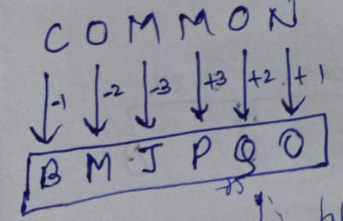 C O M M O N
-1 -2 -3 +3 +2 +1
B M J P Q O